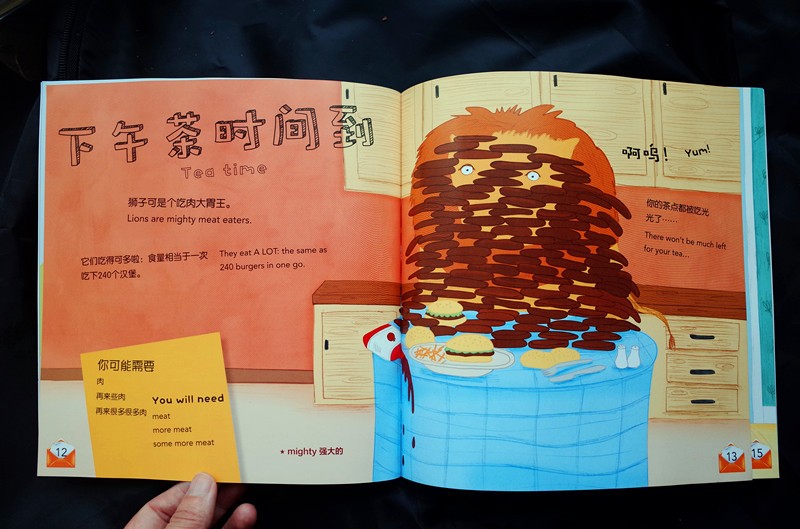 下午茶时间到
Tea time
狮子可是个吃肉大胃王。
Lions are mighty meat eaters.
它们吃得可多啦：食量相当于一次
吃下240个汉堡。
They eat A LOT: the same as
240 burgers in one go.
你可能需要
肉
再来些肉
再来很多很多肉
You will need
meat
more meat
some more meat
★ mighty 强大的
12
啊呜！
Yum!
你的茶点都被吃光
光了……
There won't be much left
for your tea...
13
15